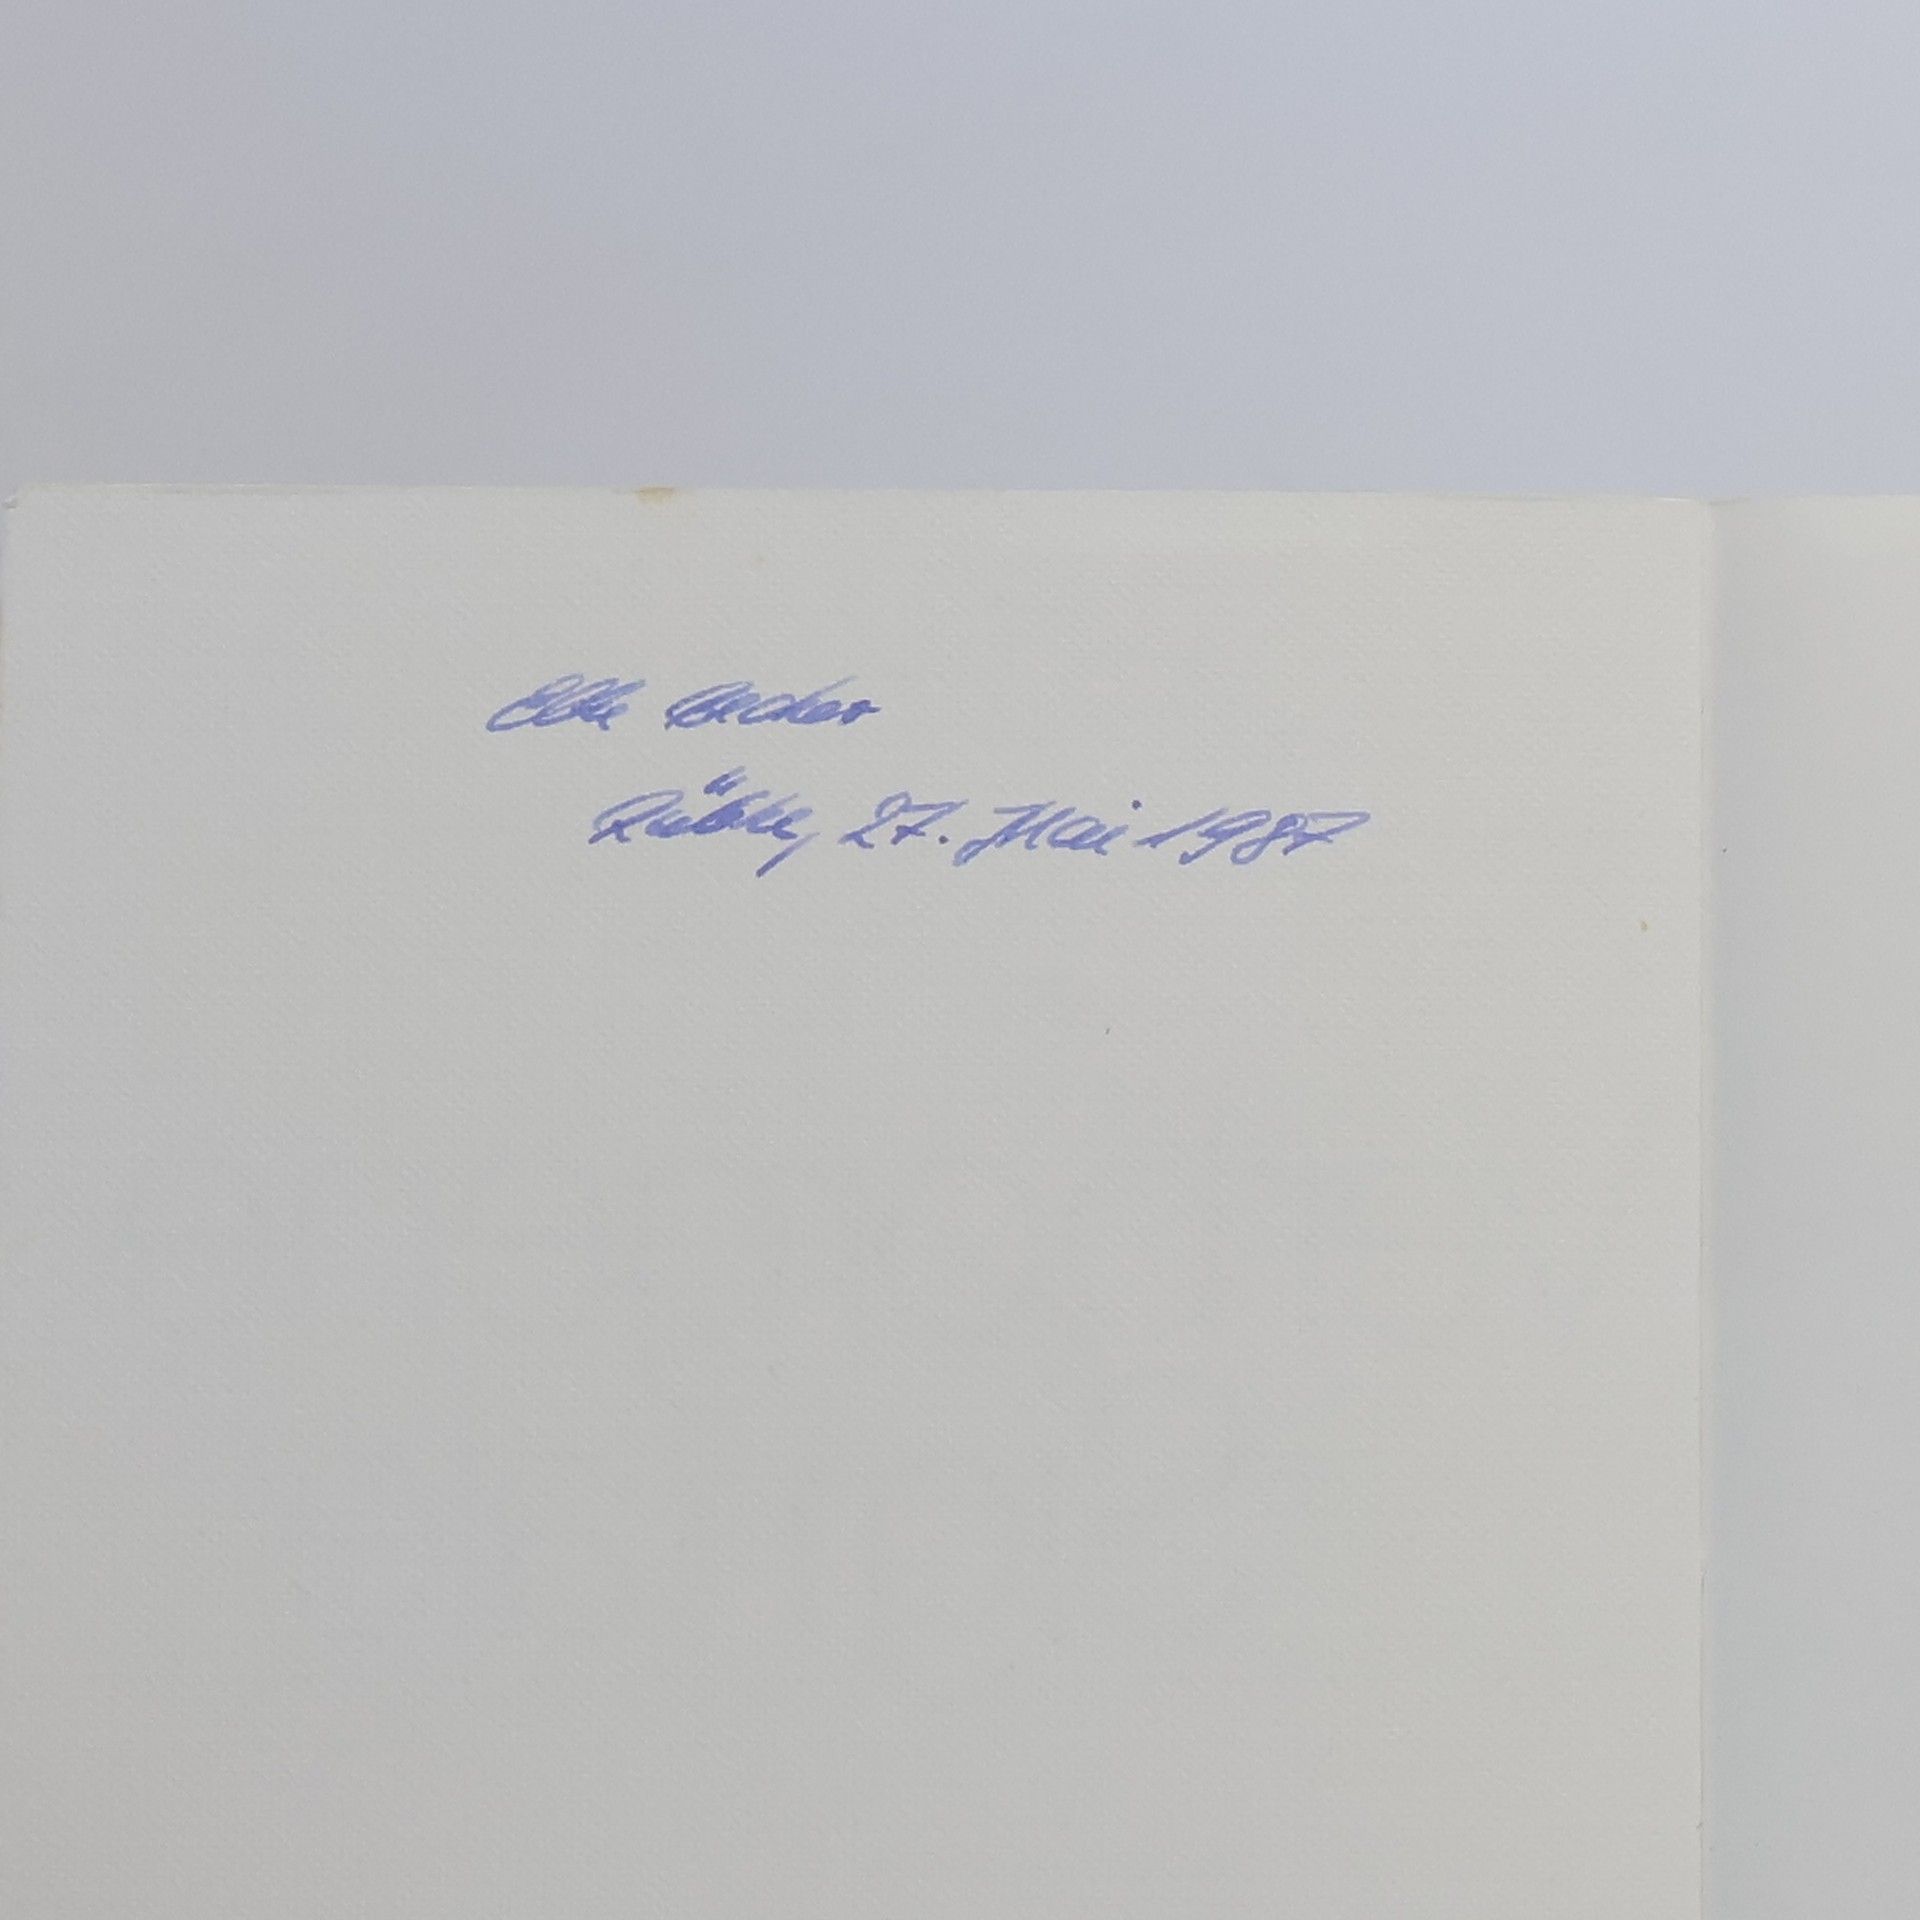 Elke Becker
Rübke, 27. Mai 1987